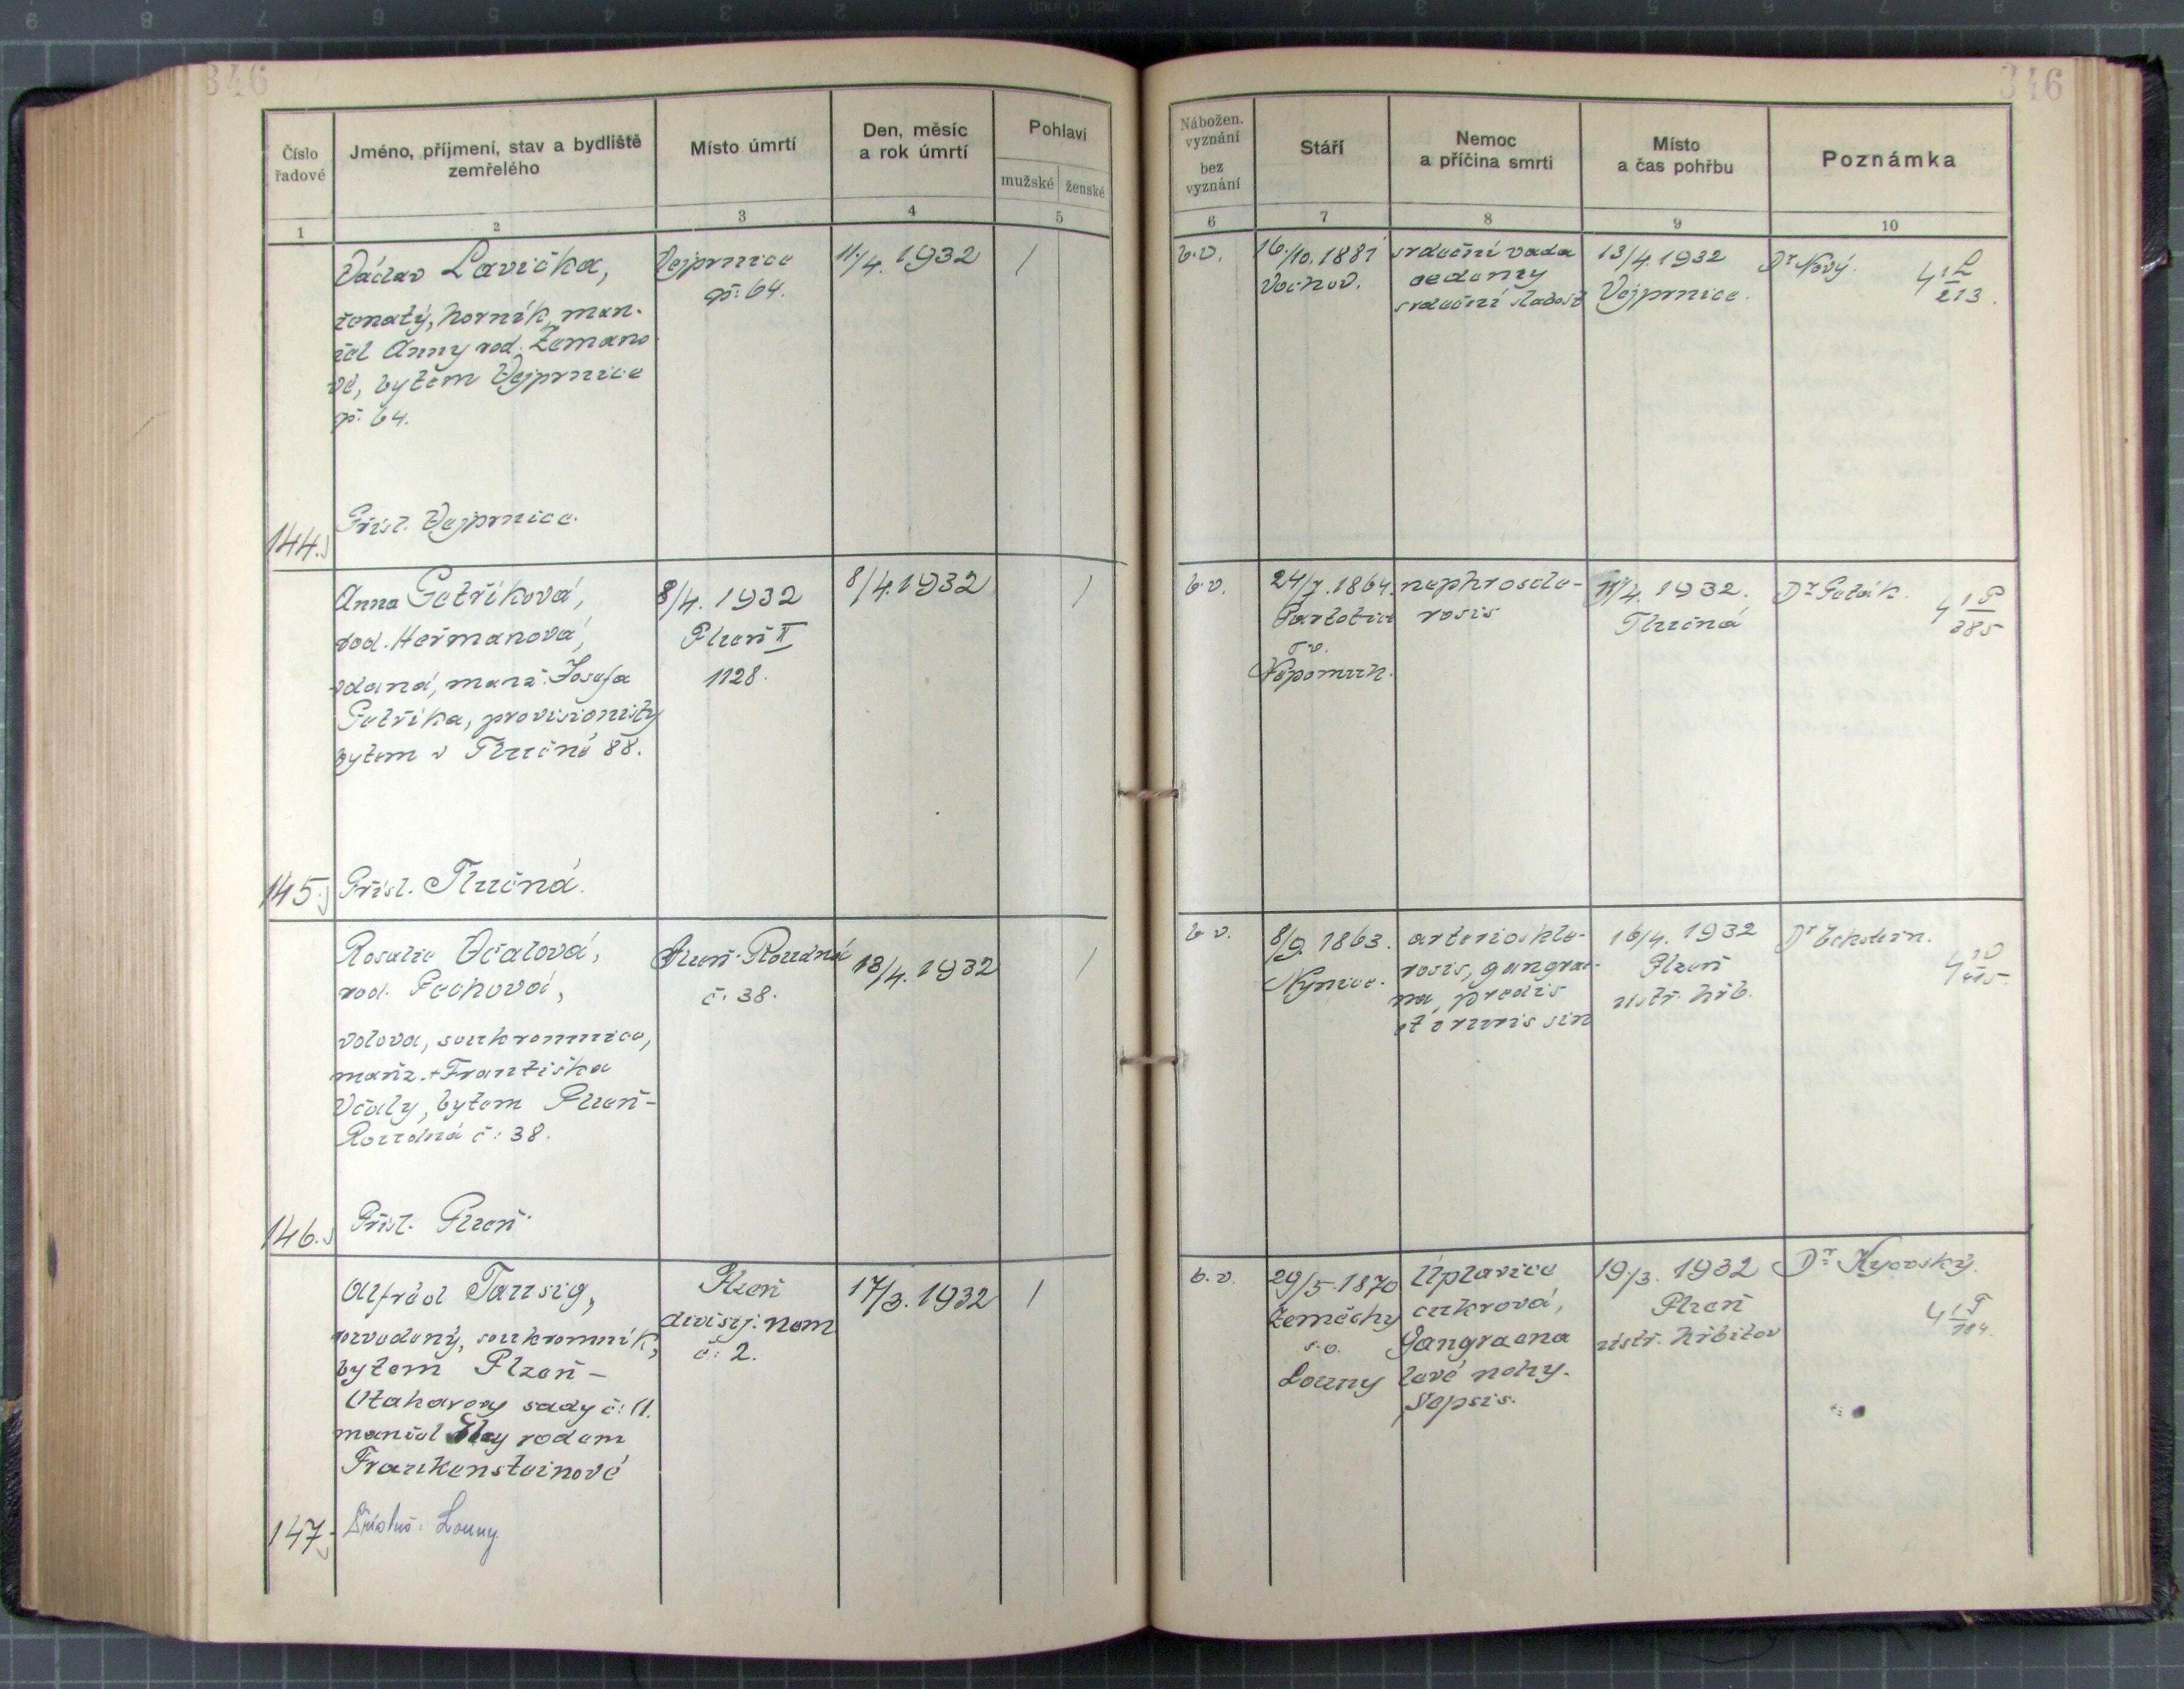 346
346
Číslo řadové
Jméno, příjmení, stav a bydliště zemřelého
Místo úmrtí
Den, měsíc a rok úmrtí
Pohlaví
mužské
ženské
Nábožen. vyznání
bez vyznání
Stáří
Nemoc a příčina smrti
Místo a čas pohřbu
Poznámka
1
2
3
4
5
6
7
8
9
10
144.
Václav Lavička,
ženatý, horník, man-
žel Anny roz. Zemano-
vé, bytem Vejprnice
čp. 64.
Přísl. Vejprnice.
Vejprnice
čp. 64.
11/4. 1932
/
b.v.
16./10. 1881
Vochov.
srdeční vada
oedemy
srdeční slabost
13/4. 1932
Vejprnice.
Dr Nový.
4 1 L
213.
145.
Anna Petříková,
rod. Heřmanová,
vdaná, manž. Josefa
Petříka, provisionisty
bytem v Tlučné 88.
Přísl. Tlučná.
8/4. 1932
Plzeň II
1128.
8/4. 1932
/
b.v.
24/7. 1864.
Nepomuk.
nephroscle-
rosis
11/4. 1932.
Tlučná
4 1 P
385
146.
Rosalie Včalová,
rod. Pechová,
vdova, soukromnice,
manž. + Františka
Včaly, bytem Plzeň-
Roudná č: 38.
Přísl. Plzeň.
Plzeň-Roudná
č. 38.
13/4. 1932
/
b.v.
8/9. 1863.
Nýřice.
arterioskle-
rosis, gangrae-
na predis
et cruris sin
16/4. 1932
Plzeň
ústř. hřb.
Dr Eckstein.
147.
Alfréd Taussig,
rozvedený, soukromník,
bytem Plzeň –
Otakarovy sady č: 11.
manžel rodem
Frankensteinové
Louny.
Plzeň
divisij. nem
č: 2.
17/3. 1932
/
b.v.
29/5. 1870
Zeměchy
s.o.
Louny
Úplavice
cukrová,
Gangraena
levé nohy.
Sepsis.
19./3. 1932
Plzeň
ústř. hřbitov
Dr Kyovský.
4 1 T
104.